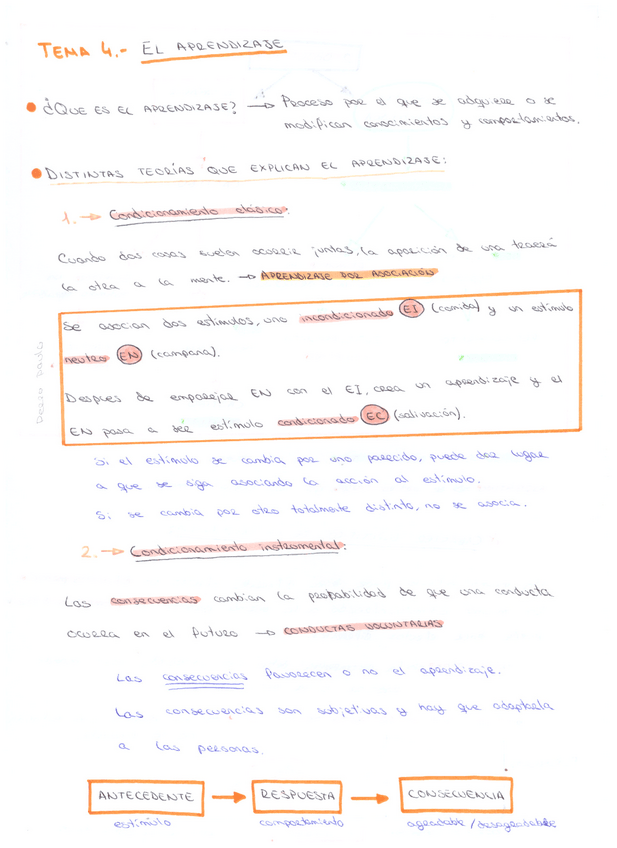 TEMA 4.- EL APRENDIZAJE
¿QUE ES EL APRENDIZAJE? → Proceso por el que se adquiere o se
modifican conocimientos y comportamientos.
DISTINTAS TEORÍAS QUE EXPLICAN EL APRENDIZAJE:
1. → Condicionamiento clásico:
Cuando dos cosas suelen ocurrir juntas, la aparición de una traerá
la otra a la mente. → APRENDIZAJE POR ASOCIACIÓN
Se asocian dos estímulos, uno incondicionado EI (comida) y un estímulo
neutro EN (campana).
Despues de emparejar EN con el EI, crea un aprendizaje y el
EN pasa a ser estímulo condicionado EC (salivación).
Si el estímulo se cambia por uno parecido, puede dar lugar
a que se siga asociando la acción al estímulo.
Si se cambia por otro totalmente distinto, no se asocia.
2. → Condicionamiento instrumental:
Las consecuencias cambian la probabilidad de que una conducta
ocurra en el futuro → CONDUCTAS VOLUNTARIAS
Las consecuencias favorecen o no el aprendizaje.
Las consecuencias son subjetivas y hay que adaptarla
a las personas.
ANTECEDENTE → RESPUESTA → CONSECUENCIA
estímulo comportamiento agradable / desagradable